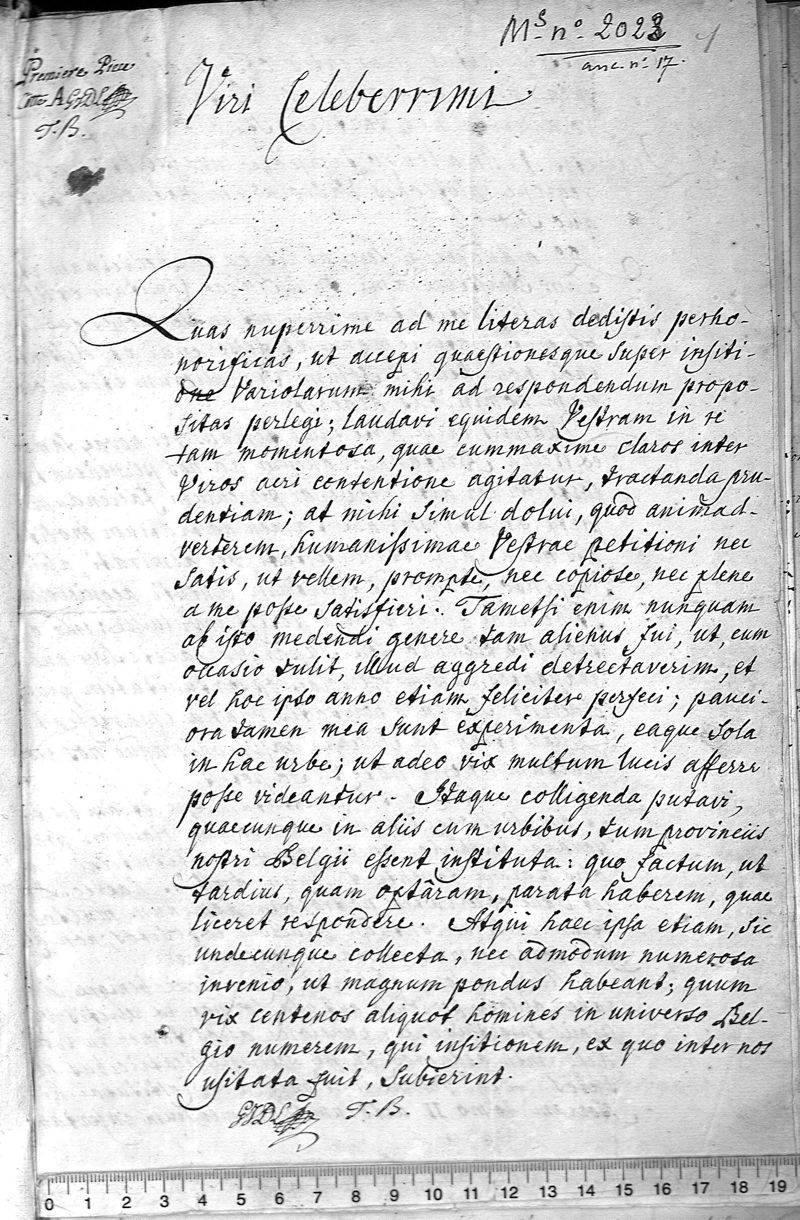 Ms. no. 2023
anc. no. 17.
1
Premiere Piece
Cotté A GJDL
T. B.
Viri Celeberrimi.
Quas nuperrime ad me literas dedistis perho-
norificas, ut accepi quaestionesque super insiti-
one Variolarum mihi ad respondendum propo-
sitas perlegi; laudavi equidem Vestram in re
tam momentosa, quae cummaxime claros inter
Viros acri contentione agitatur, tractanda pru-
dentiam; at mihi simul dolui, quod animad-
verterem, humanissimae Vestrae petitioni nec
satis, ut vellem, prompte, nec copiose, nec plene
a me posse satisfieri. Tametsi enim nunquam
ab isto medendi genere tam alienus fui, ut, cum
occasio tulit, illud aggredi detrectaverim, et
vel hoc ipso anno etiam feliciter perfeci; pauci-
ora tamen mea sunt experimenta, eaque sola
in hac urbe; ut adeo vix multum lucis afferre
posse videantur. Itaque colligenda putavi,
quaecunque in aliis cum urbibus, tum provinciis
nostri Belgii essent instituta: quo factum, ut
tardius, quam optâram, parata haberem, quae
liceret respondere. Atqui haec ipsa etiam, sic
undecunque collecta, nec admodum numerosa
invenio, ut magnum pondus habeant; quum
vix centenos aliquot homines in universo Bel-
gio numerem, qui insitionem, ex quo inter nos
usitata fuit, subierint.
GJDL T. B.
0 1 2 3 4 5 6 7 8 9 10 11 12 13 14 15 16 17 18 19